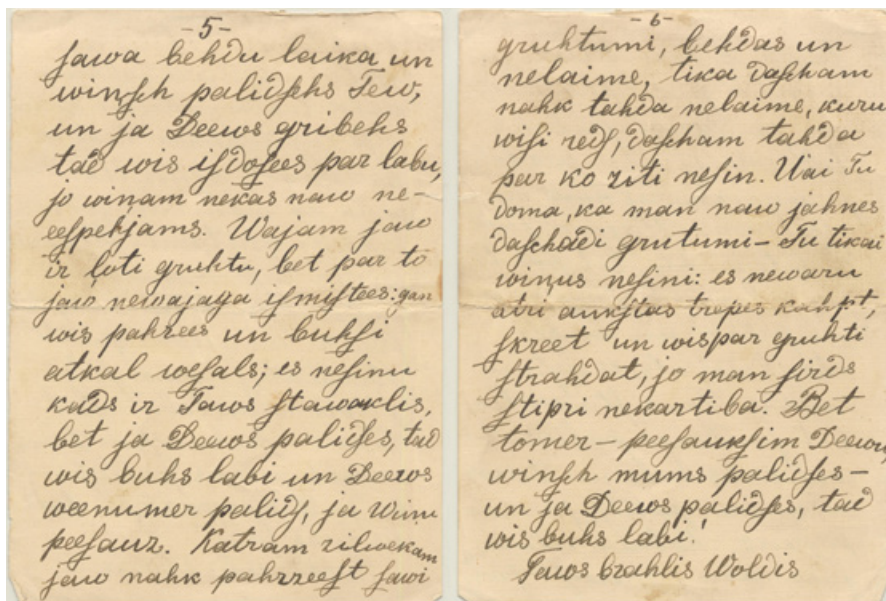 -5-
sawa behdu laika un
winsch palidsehs Tew,
un ja Deews gribehs
tad wis isdosees par labu,
jo winam nekas naw ne-
eespehjams. Wajam jaw
ir loti gruhtu, bet par to
jaw newajaga ismistees: gan
wis pahrees un buhsi
atkal wesals; es nesinu
kads ir Taws stawoklis,
bet ja Deews palidses, tad
wis buhs labi un Deews
weenumer palids, ja Winu
peesauz. Katram zilwekam
jaw nahk pahrzeest sawi
-6-
gruhtumi, behdas un
nelaime, tika dascham
nahk tahda nelaime, kuru
wisi reds, dascham tahda
par ko ziti nesin. Vai Tu
doma, ka man naw jahnes
daschadi grutumi - Tu tikai
winus nesini: es newaru
atri aukstas trepes kahpt,
skreet un wispar gruhti
strahdat, jo man sirds
stipri nekartiba. Bet
tomer - peesauksim Deewu,
winsch mums palidses -
un ja Deews palidses, tad
wis buhs labi!
Taws brahlis Woldis